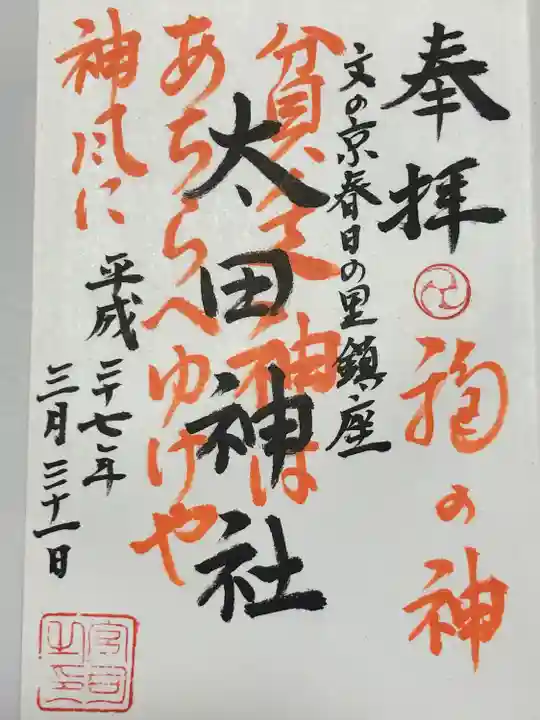 奉拝
神の神
文の京春日の里鎮座
貧乏神は
太田神社
あちらへゆけや
神風に
平成二十七年
三月三十一日
宮司之印